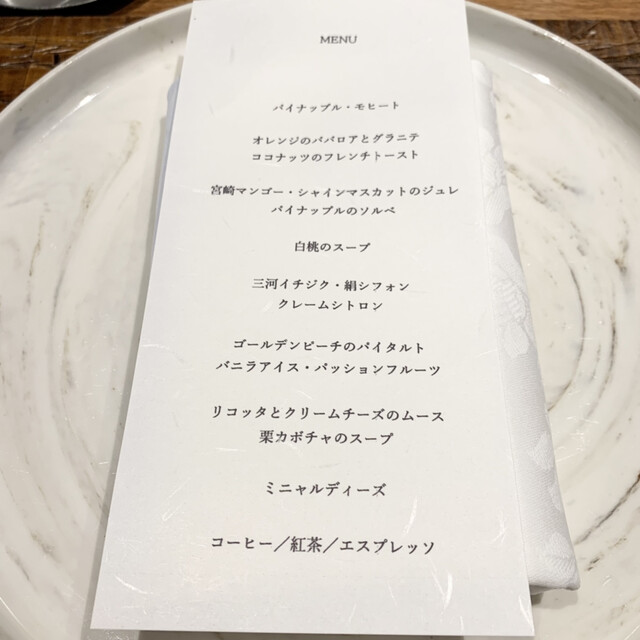 MENU
パイナップル・モヒート
オレンジのババロアとグラニテ
ココナッツのフレンチトースト
宮崎マンゴー・シャインマスカットのジュレ
パイナップルのソルベ
白桃のスープ
三河イチジク・絹シフォン
クレームシトロン
ゴールデンピーチのパイタルト
バニラアイス・パッションフルーツ
リコッタとクリームチーズのムース
栗カボチャのスープ
ミニャルディーズ
コーヒー／紅茶／エスプレッソ